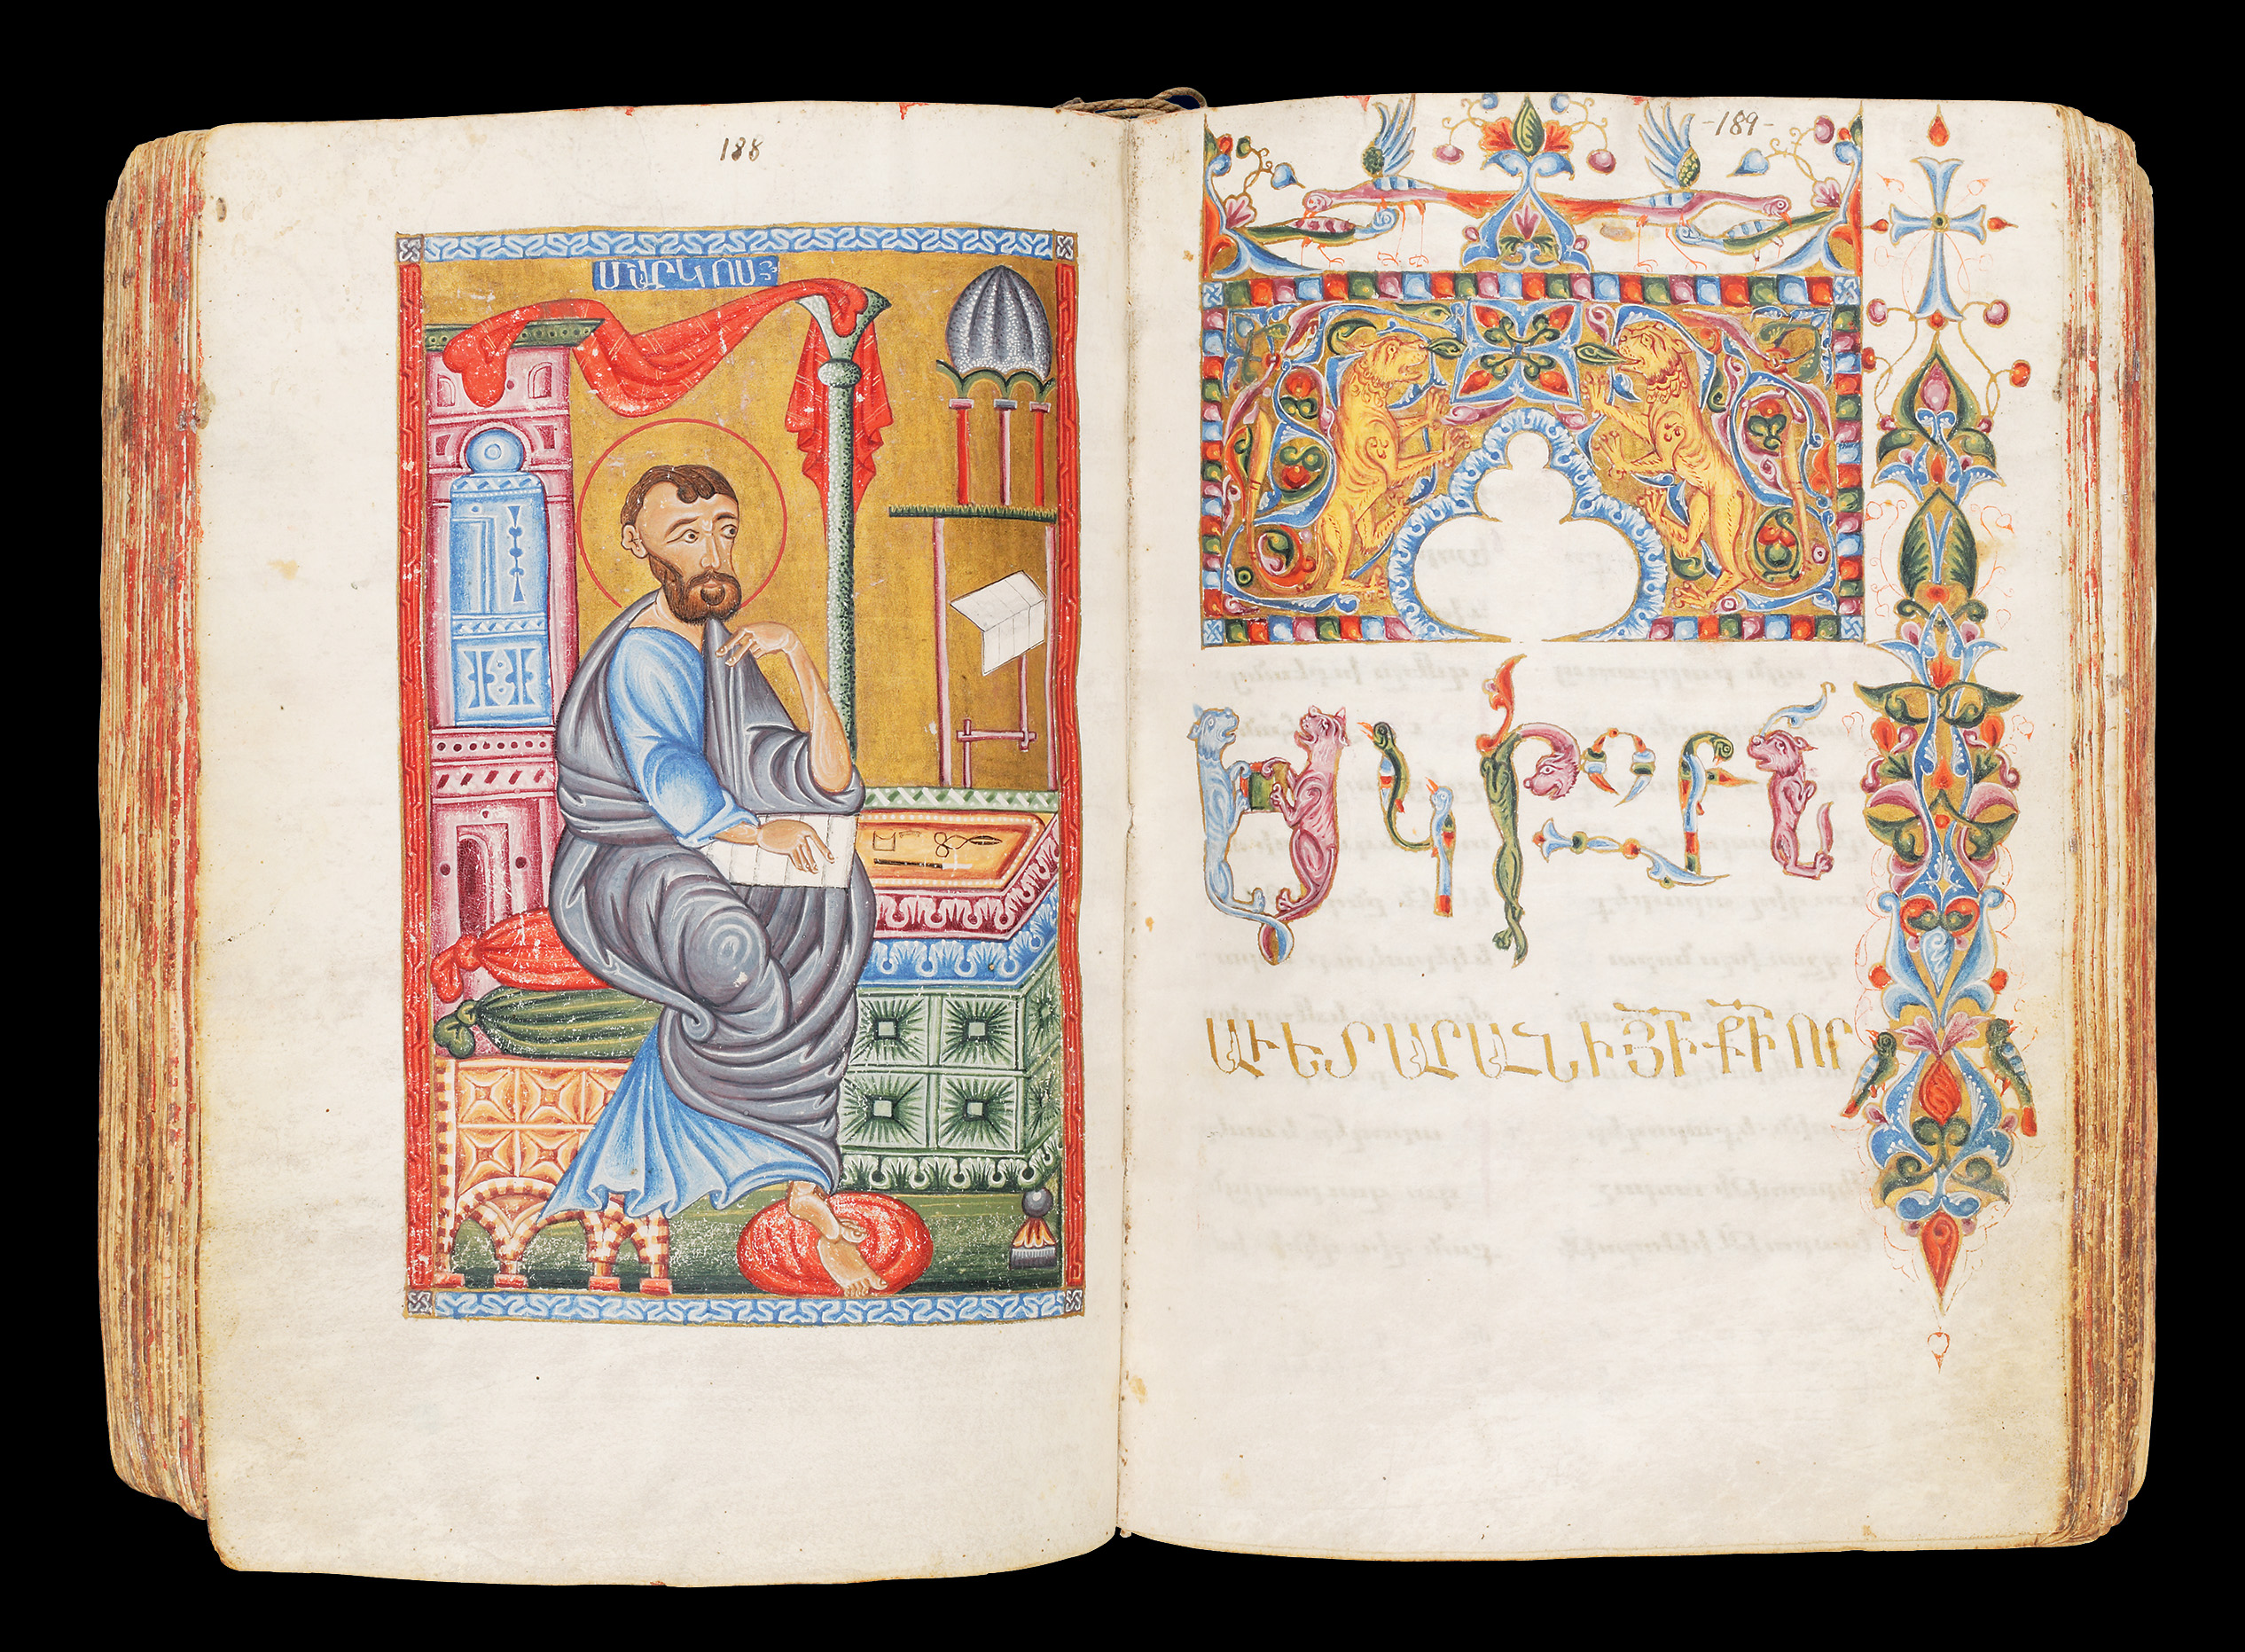 188
ՄԱՐԿՈՍ
-189-
ՍԿԻԶԲՆ
ԱՒԵՏԱՐԱՆԻ ՅԻ ՔԻ ՈՐ